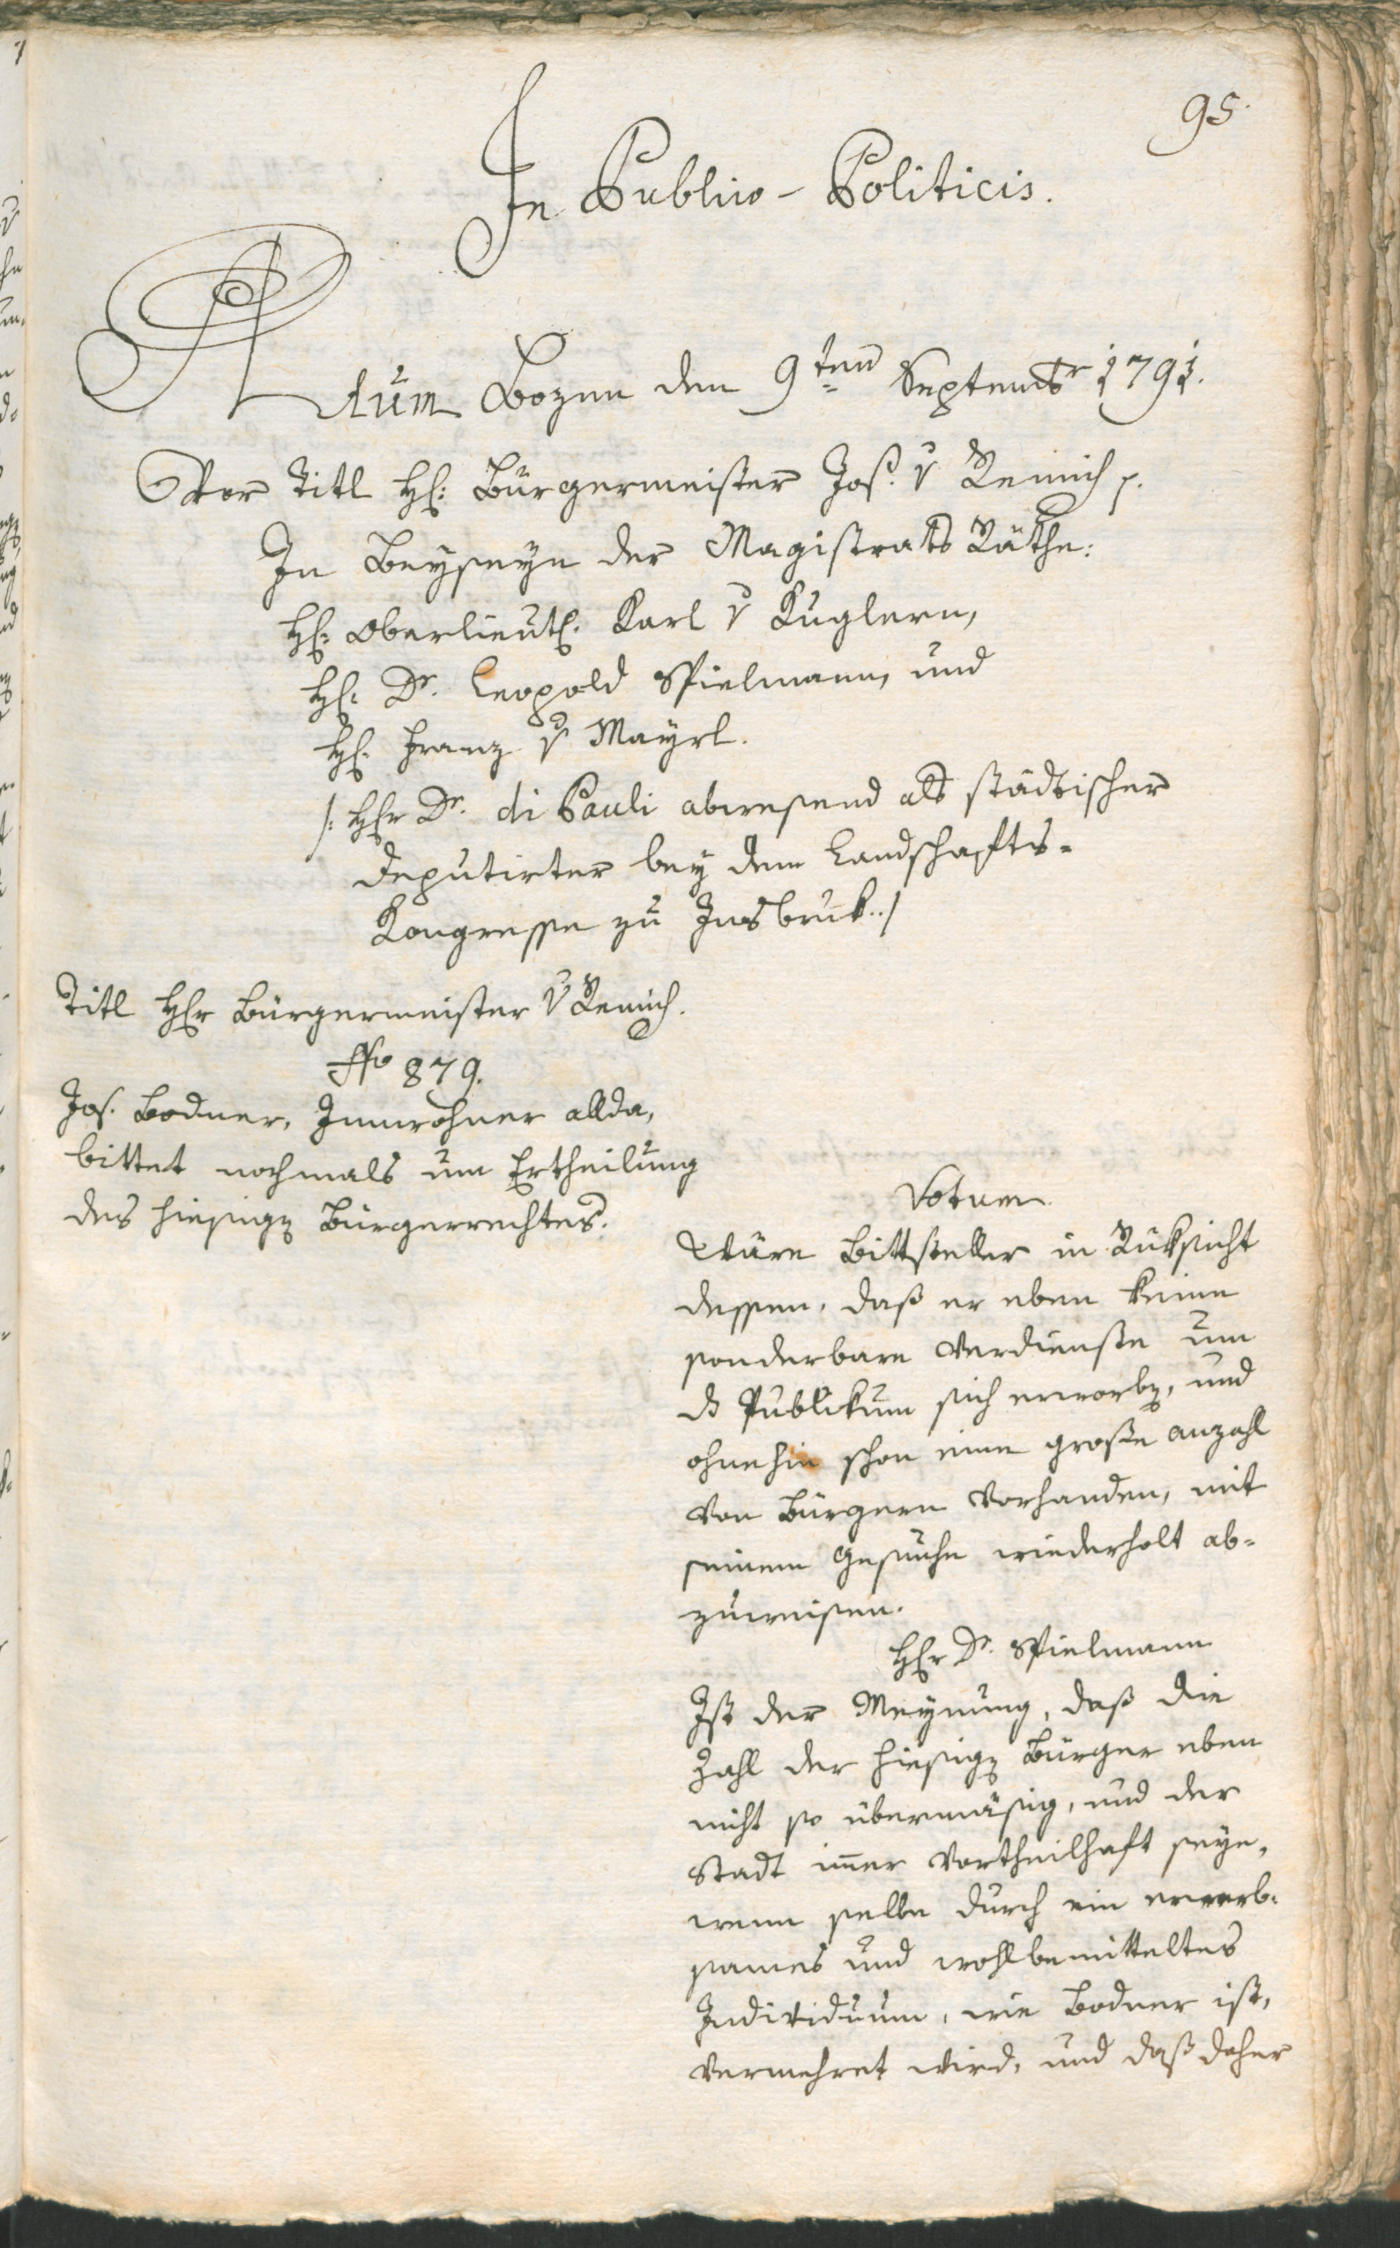 95.
In Publico-Politicis.
Actum Bozen den 9ten Septembr 1791.
Vor Titl H: Bürgermeister Jos. v Remich p.
In Beyseyn der Magistrats Räthe:
H: Oberlieut. Karl v Kuglern,
H: Dr. Leopold Spielmann, und
H: Franz v Mayrl.
/: Hr Dr. di Pauli abwesend als städtischer
Deputirter bey dem Landschafts-
Kongresse zu Insbruk. :/
Titl Hr Bürgermeister v Remich.
No 879.
Jos. Bodner, Innwohner allda,
bittet nochmals um Ertheilung
des hiesigen Bürgerrechtes.
Votum
Wäre Bittsteller in Rüksicht
dessen, daß er eben keine
sonderbare Verdienste um
ds Publikum sich erworben, und
ohnehin schon eine große Anzahl
von Bürgern vorhanden, mit
seinem Gesuche wiederholt ab-
zuweisen.
Hr Dr. Spielmann
Ist der Meynung, daß die
Zahl der hiesigen Bürger eben
nicht so übermäsig, und der
Stadt imer vortheilhaft seye,
wenn selbe durch ein erwerb-
sames und wohlbemitteltes
Individuum, wie Bodner ist,
vermehret wird, und daß daher